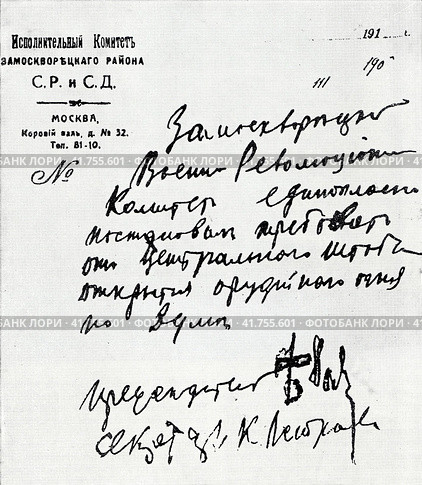 Исполнительный Комитетъ
ЗАМОСКВОРѢЦКАГО РАЙОНА
С.Р. и С.Д.
МОСКВА,
Коровій валъ, д. № 32.
Тел. 81-10.
191 г.
№
Замоскворецкий
Военно Революцион
Комитет единогласно
постановил требовать
от Центрального Штаба
открытия орудийного огня
по Думе
ФОТОБАНК ЛОРИ · 41.755.601 · ФОТОБАНК ЛОРИ · 41.755.601 · ФОТОБАНК ЛОРИ
ФОТОБАНК ЛОРИ · 41.755.601 · ФОТОБАНК ЛОРИ · 41.755.601 · ФОТОБАНК ЛОРИ